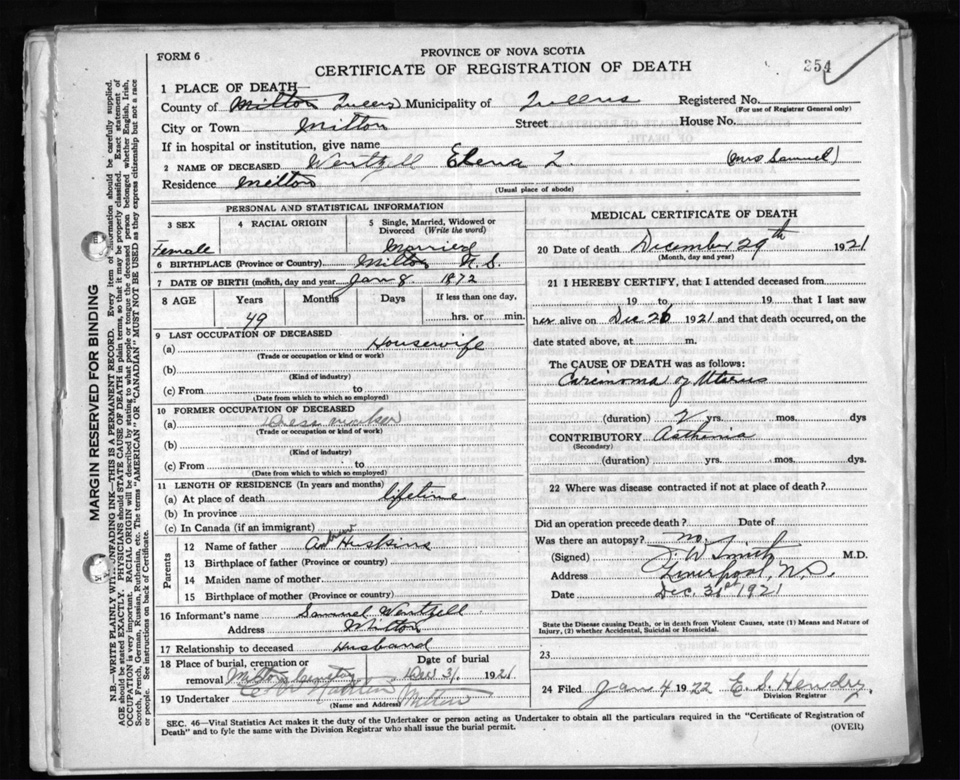 FORM 6
PROVINCE OF NOVA SCOTIA
CERTIFICATE OF REGISTRATION OF DEATH
354
1 PLACE OF DEATH
County of Milton Queens Municipality of Queens Registered No.
(For use of Registrar General only)
City or Town Milton Street House No.
If in hospital or institution, give name
2 NAME OF DECEASED Wentzell Elena L. (Mrs Samuel)
Residence Milton
(Usual place of abode)
PERSONAL AND STATISTICAL INFORMATION
3 SEX 4 RACIAL ORIGIN 5 Single, Married, Widowed or Divorced (Write the word)
Female Married
6 BIRTHPLACE (Province or Country) Milton N.S.
7 DATE OF BIRTH (month, day and year Jan 8. 1872
8 AGE Years Months Days If less than one day,
49 hrs. or min.
9 LAST OCCUPATION OF DECEASED
(a) Housewife
(Trade or occupation or kind or work)
(b)
(Kind of industry)
(c) From to
(Date from which to which so employed)
10 FORMER OCCUPATION OF DECEASED
(a) Dress maker
(Trade or occupation or kind of work)
(b)
(Kind of industry)
(c) From to
(Date from which to which so employed)
11 LENGTH OF RESIDENCE (In years and months)
(a) At place of death lifetime
(b) In province
(c) In Canada (if an immigrant)
Parents
12 Name of father Andrew Huskins
13 Birthplace of father (Province or country)
14 Maiden name of mother
15 Birthplace of mother (Province or country)
16 Informant's name Samuel Wentzell
Address Milton
17 Relationship to deceased Husband
18 Place of burial, cremation or removal Milton Cemetery Date of burial Dec 31. 1921
19 Undertaker Milton
(Name and Address)
MEDICAL CERTIFICATE OF DEATH
20 Date of death December 29th 1921
(Month, day and year)
21 I HEREBY CERTIFY, that I attended deceased from
19 to 19 that I last saw
her alive on Dec 26 1921 and that death occurred, on the
date stated above, at m.
The CAUSE OF DEATH was as follows:
Carcinoma of Uterus
(duration) 2 yrs. mos. dys
CONTRIBUTORY Asthenia
(Secondary)
(duration) yrs. mos. dys.
22 Where was disease contracted if not at place of death?
Did an operation precede death? Date of
Was there an autopsy? no.
(Signed) J. W. Smith M.D.
Address Liverpool, N.S.
Date Dec. 31st 1921
State the Disease causing Death, or in death from Violent Causes, state (1) Means and Nature of
Injury, (2) whether Accidental, Suicidal or Homicidal.
23
24 Filed Jan 4 1922 E. S. Hendry.
Division Registrar
SEC. 46—Vital Statistics Act makes it the duty of the Undertaker or person acting as Undertaker to obtain all the particulars required in the "Certificate of Registration of
Death" and to fyle the same with the Division Registrar who shall issue the burial permit.
(OVER)
MARGIN RESERVED FOR BINDING
N.B.—WRITE PLAINLY WITH UNFADING INK—THIS IS A PERMANENT RECORD. Every item of information should be carefully supplied.
AGE should be stated EXACTLY. PHYSICIANS should STATE CAUSE OF DEATH in plain terms, so that it may be properly classified. Exact statement of
OCCUPATION is very important. RACIAL ORIGIN will be described by stating to what people or tongue the deceased person belonged whether English, Irish,
Scotch, French, German, Russian, Ruthenian, etc. The terms "AMERICAN" or "CANADIAN" MUST NOT BE USED as they express citizenship but not a race
or people. See instructions on back of Certificate.